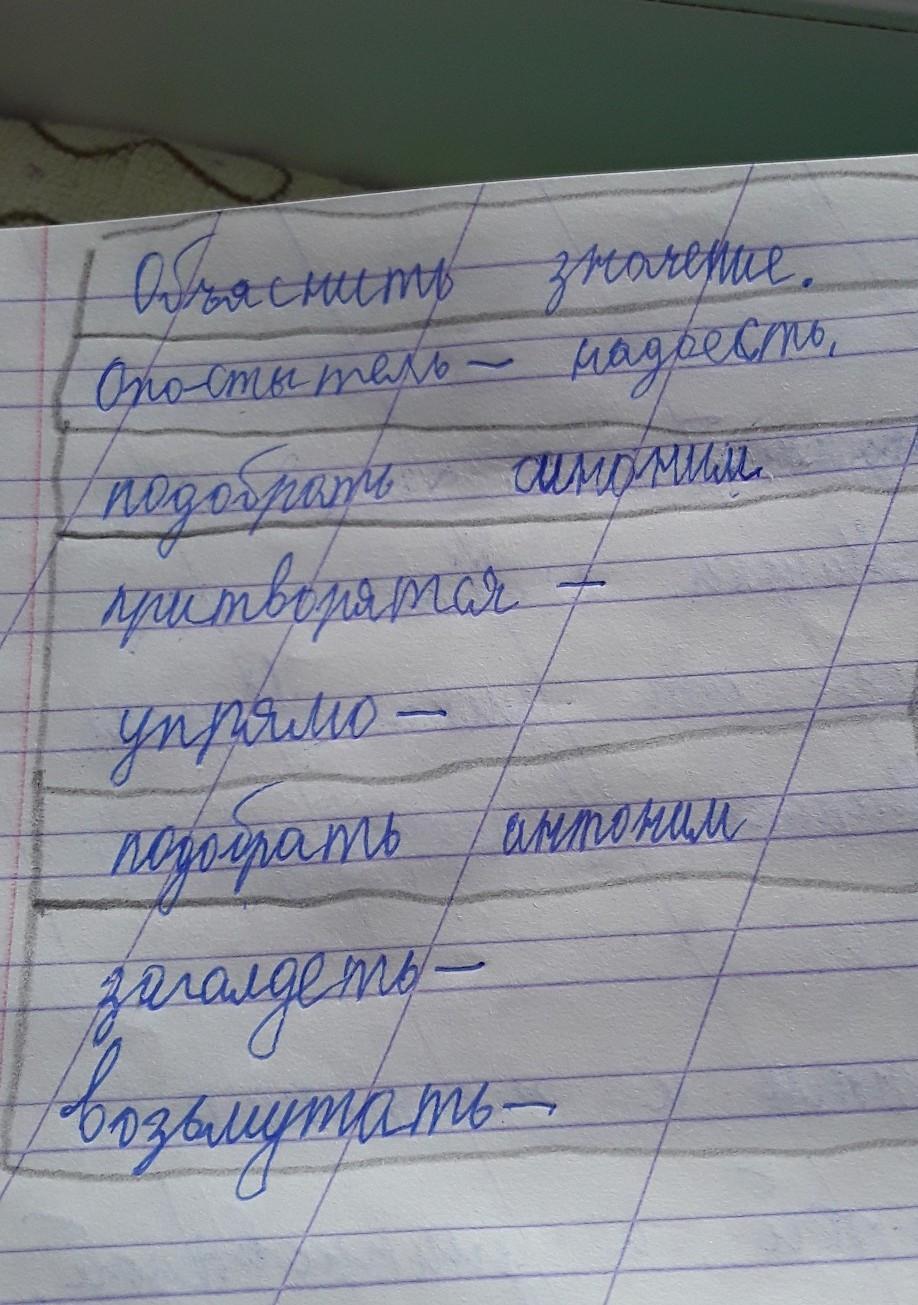 Объяснить значение.
Опостытель — надоесть,
подобрать синоним
притворятся —
упрямо —
подобрать антоним
загалдеть —
возьмутать —